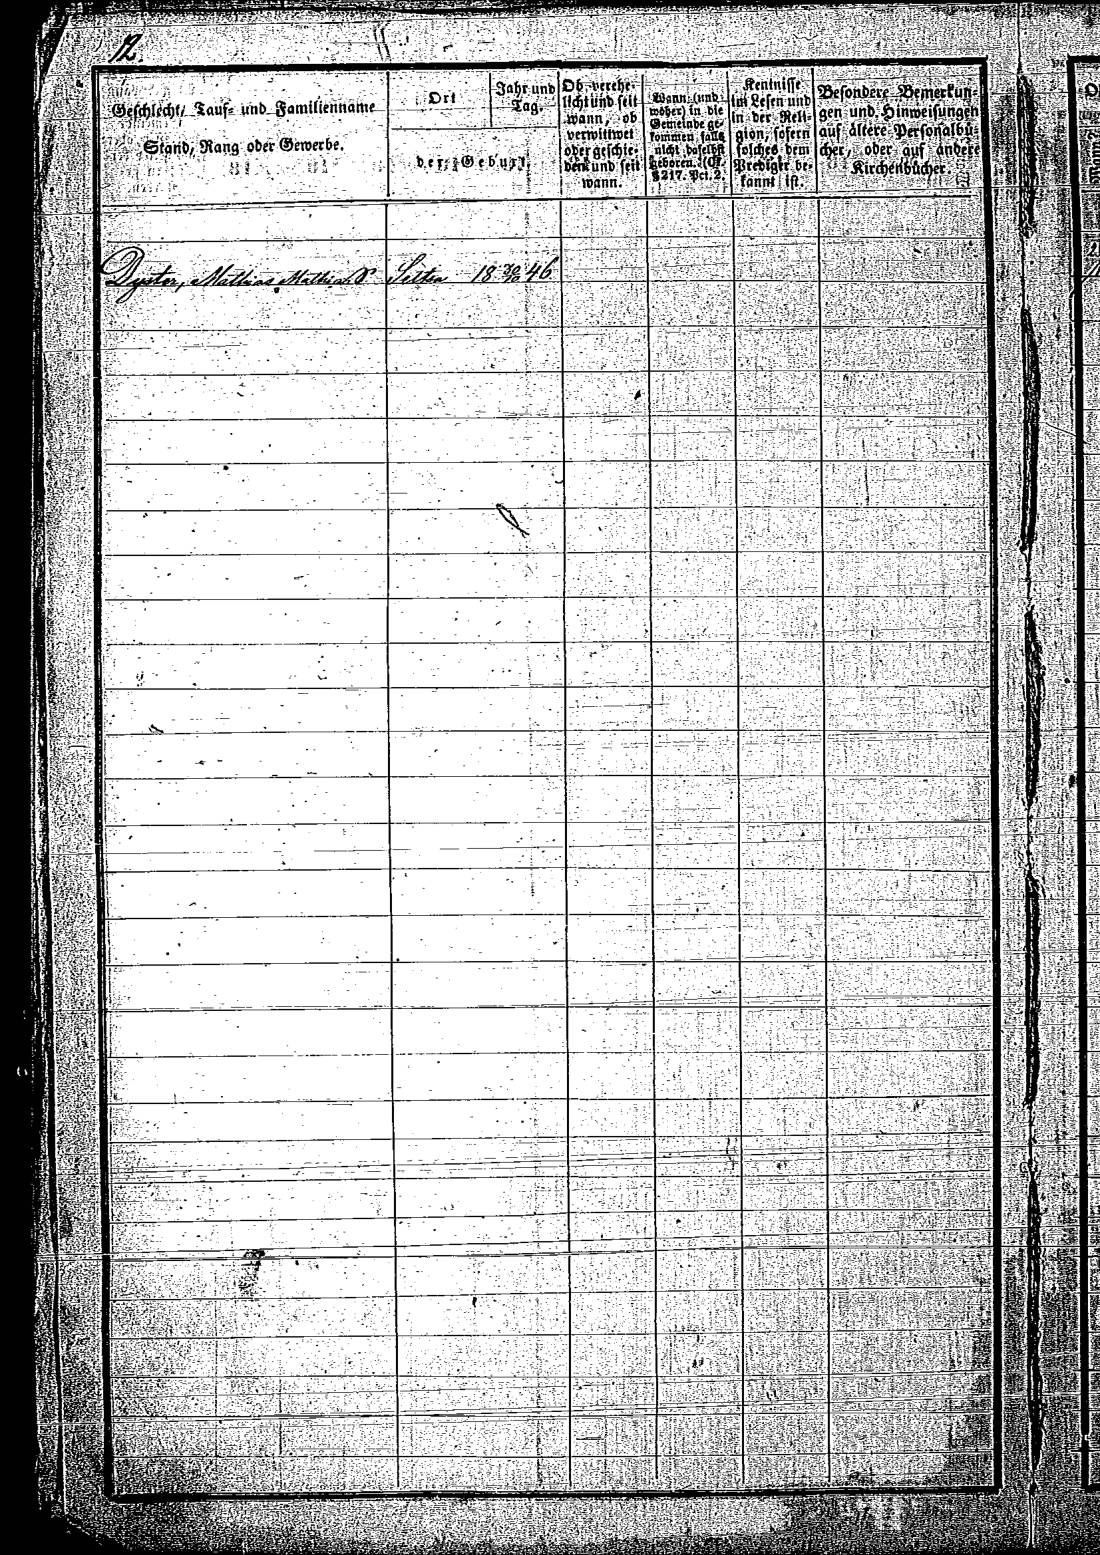 12.
Geschlecht, Tauf- und Familienname
Stand, Rang oder Gewerbe.
Ort
Jahr und
Tag.
der Geburt.
Ob verehe-
licht und seit
wann, ob
verwittwet
oder geschie-
den und seit
wann.
Wann (und
woher) in die
Gemeinde ge-
kommen falls
nicht daselbst
geboren. (Cf.
§ 217. Pct. 2.
Kentnisse
im Lesen und
in der Reli-
gion, sofern
solches dem
Prediger be-
kannt ist.
Besondere Bemerkun-
gen und Hinweisungen
auf ältere Personalbü-
cher, oder auf andere
Kirchenbücher.
Mathias Mathias S. 18 46